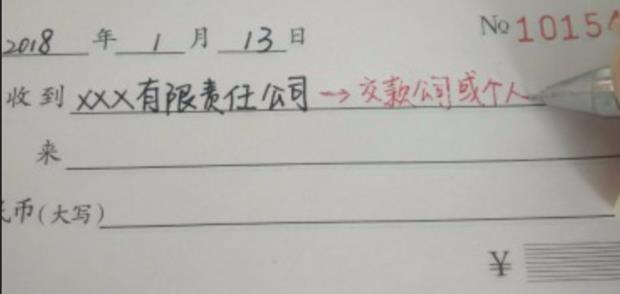 2018 年 1 月 13 日 No 1015
收到 XXX有限责任公司 → 交款公司或个人
来
币(大写)
¥